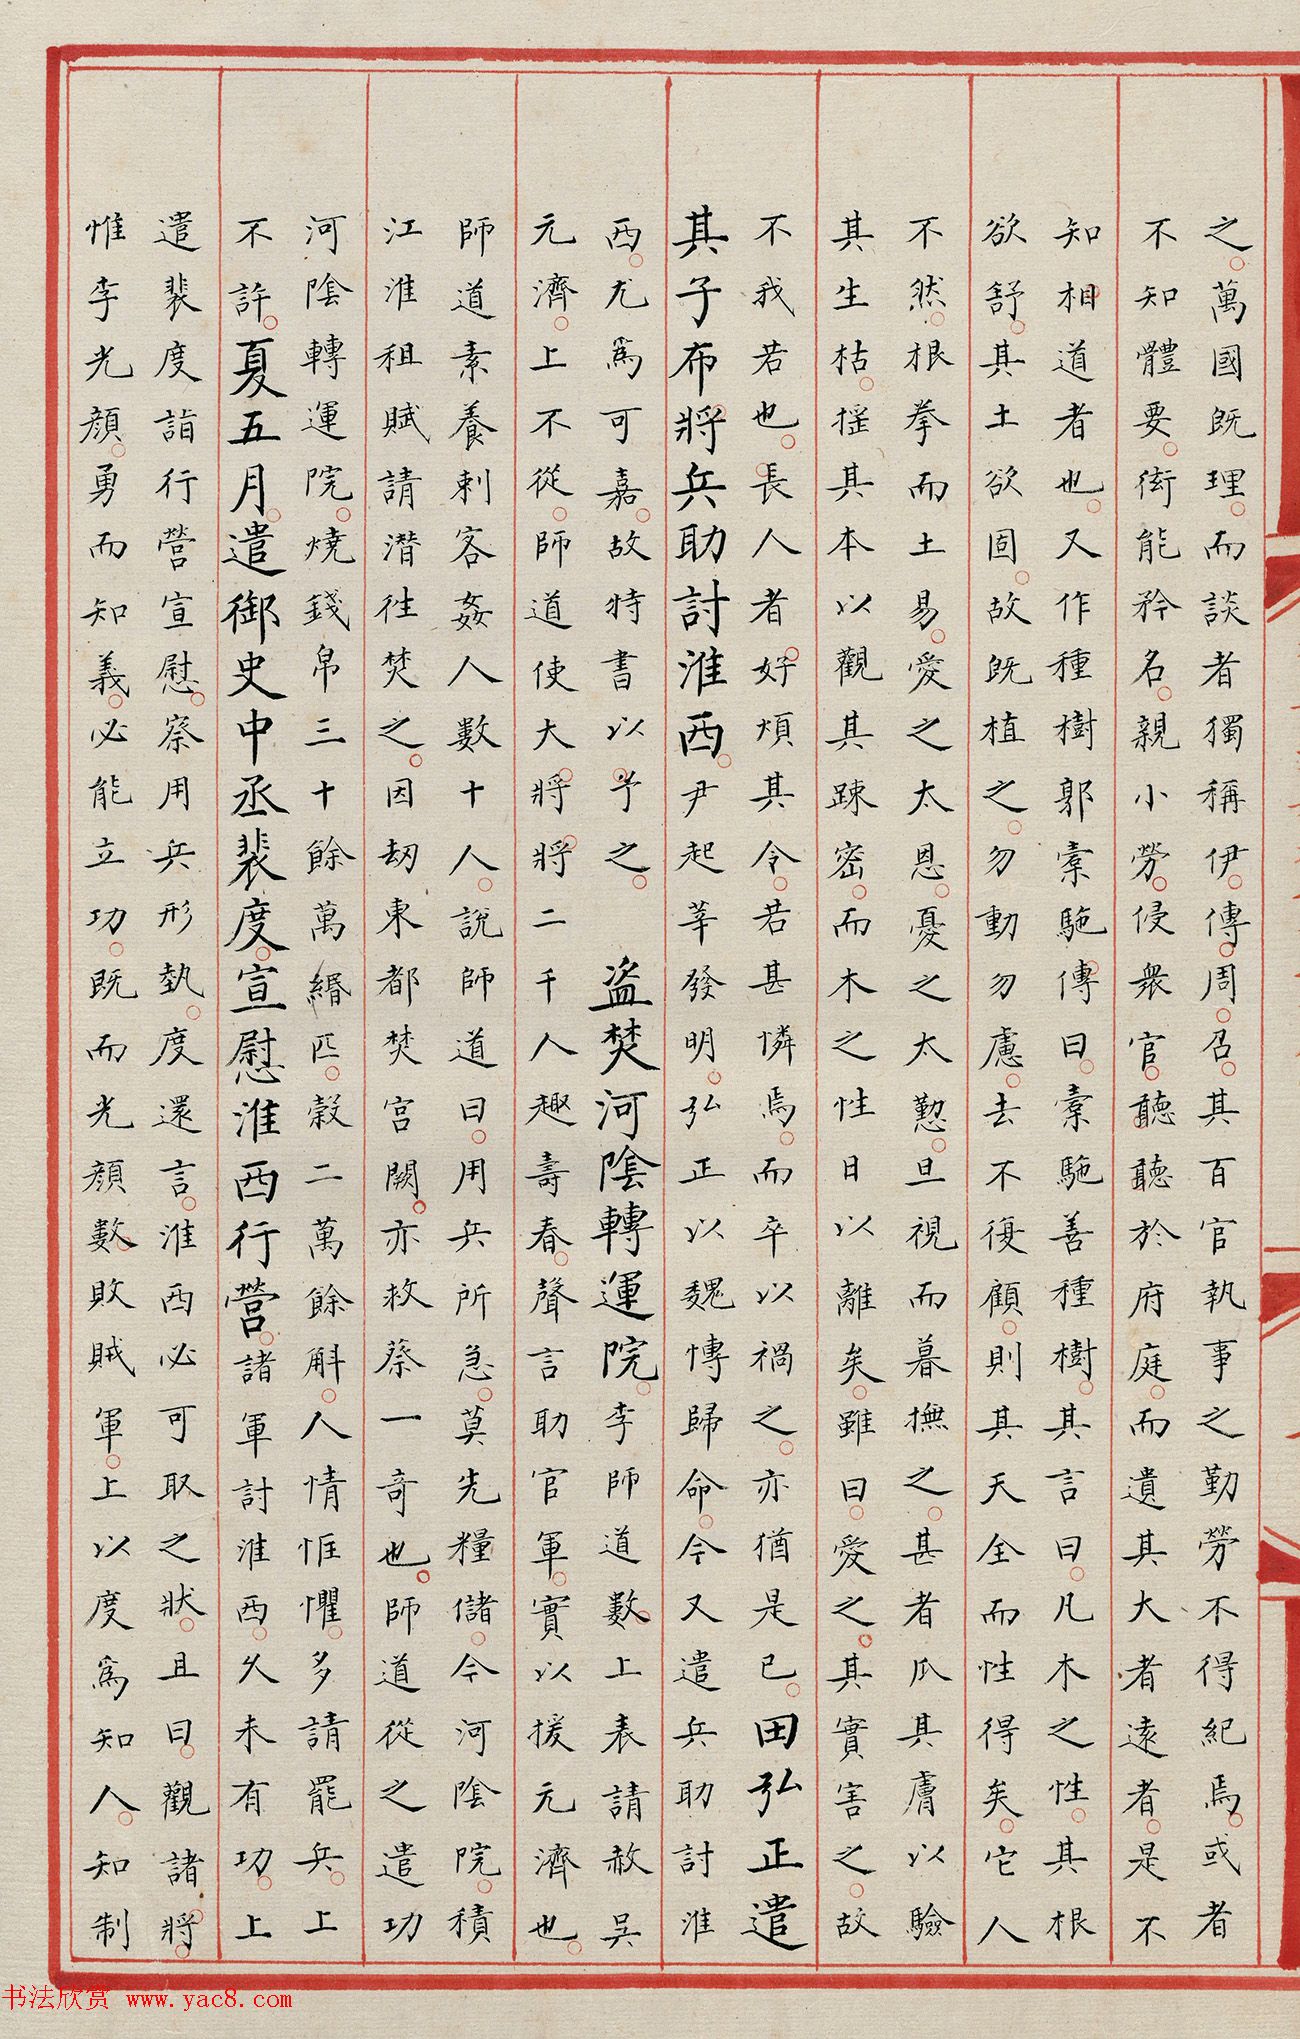 之萬國既理而談者獨稱伊傅周召其百官執事之勤勞不得紀焉或者
不知體要衒能矜名親小勞侵衆官聽聽於府庭而遺其大者遠者是不
知相道者也又作種樹郭橐駞傳曰橐駞善種樹其言曰凡木之性其根
欲舒其土欲固故既植之勿動勿慮去不復顧則其天全而性得矣它人
不然根拳而土易愛之太恩憂之太懃旦視而暮撫之甚者爪其膚以驗
其生枯揺其本以觀其踈密而木之性日以離矣雖曰愛之其實害之故
不我若也長人者好煩其令若甚憐焉而卒以禍之亦猶是已田弘正遣
其子布將兵助討淮西尹起莘發明弘正以魏愽歸命今又遣兵助討淮
西尤爲可嘉故特書以予之 盗焚河陰轉運院李師道數上表請赦吳
元濟上不從師道使大將將二千人趣壽春聲言助官軍實以援元濟也
師道素養刺客姦人數十人說師道曰用兵所急莫先糧儲今河陰院積
江淮租賦請潜往焚之因刼東都焚宮闕亦救蔡一竒也師道從之遣功
河陰轉運院燒錢帛三十餘萬緡匹穀二萬餘斛人情恇懼多請罷兵上
不許夏五月遣御史中丞裴度宣慰淮西行營諸軍討淮西乆未有功上
遣裴度詣行營宣慰察用兵形埶度還言淮西必可取之狀且曰觀諸將
惟李光顔勇而知義必能立功既而光顔數敗賊軍上以度爲知人知制
书法欣赏 www.yac8.com